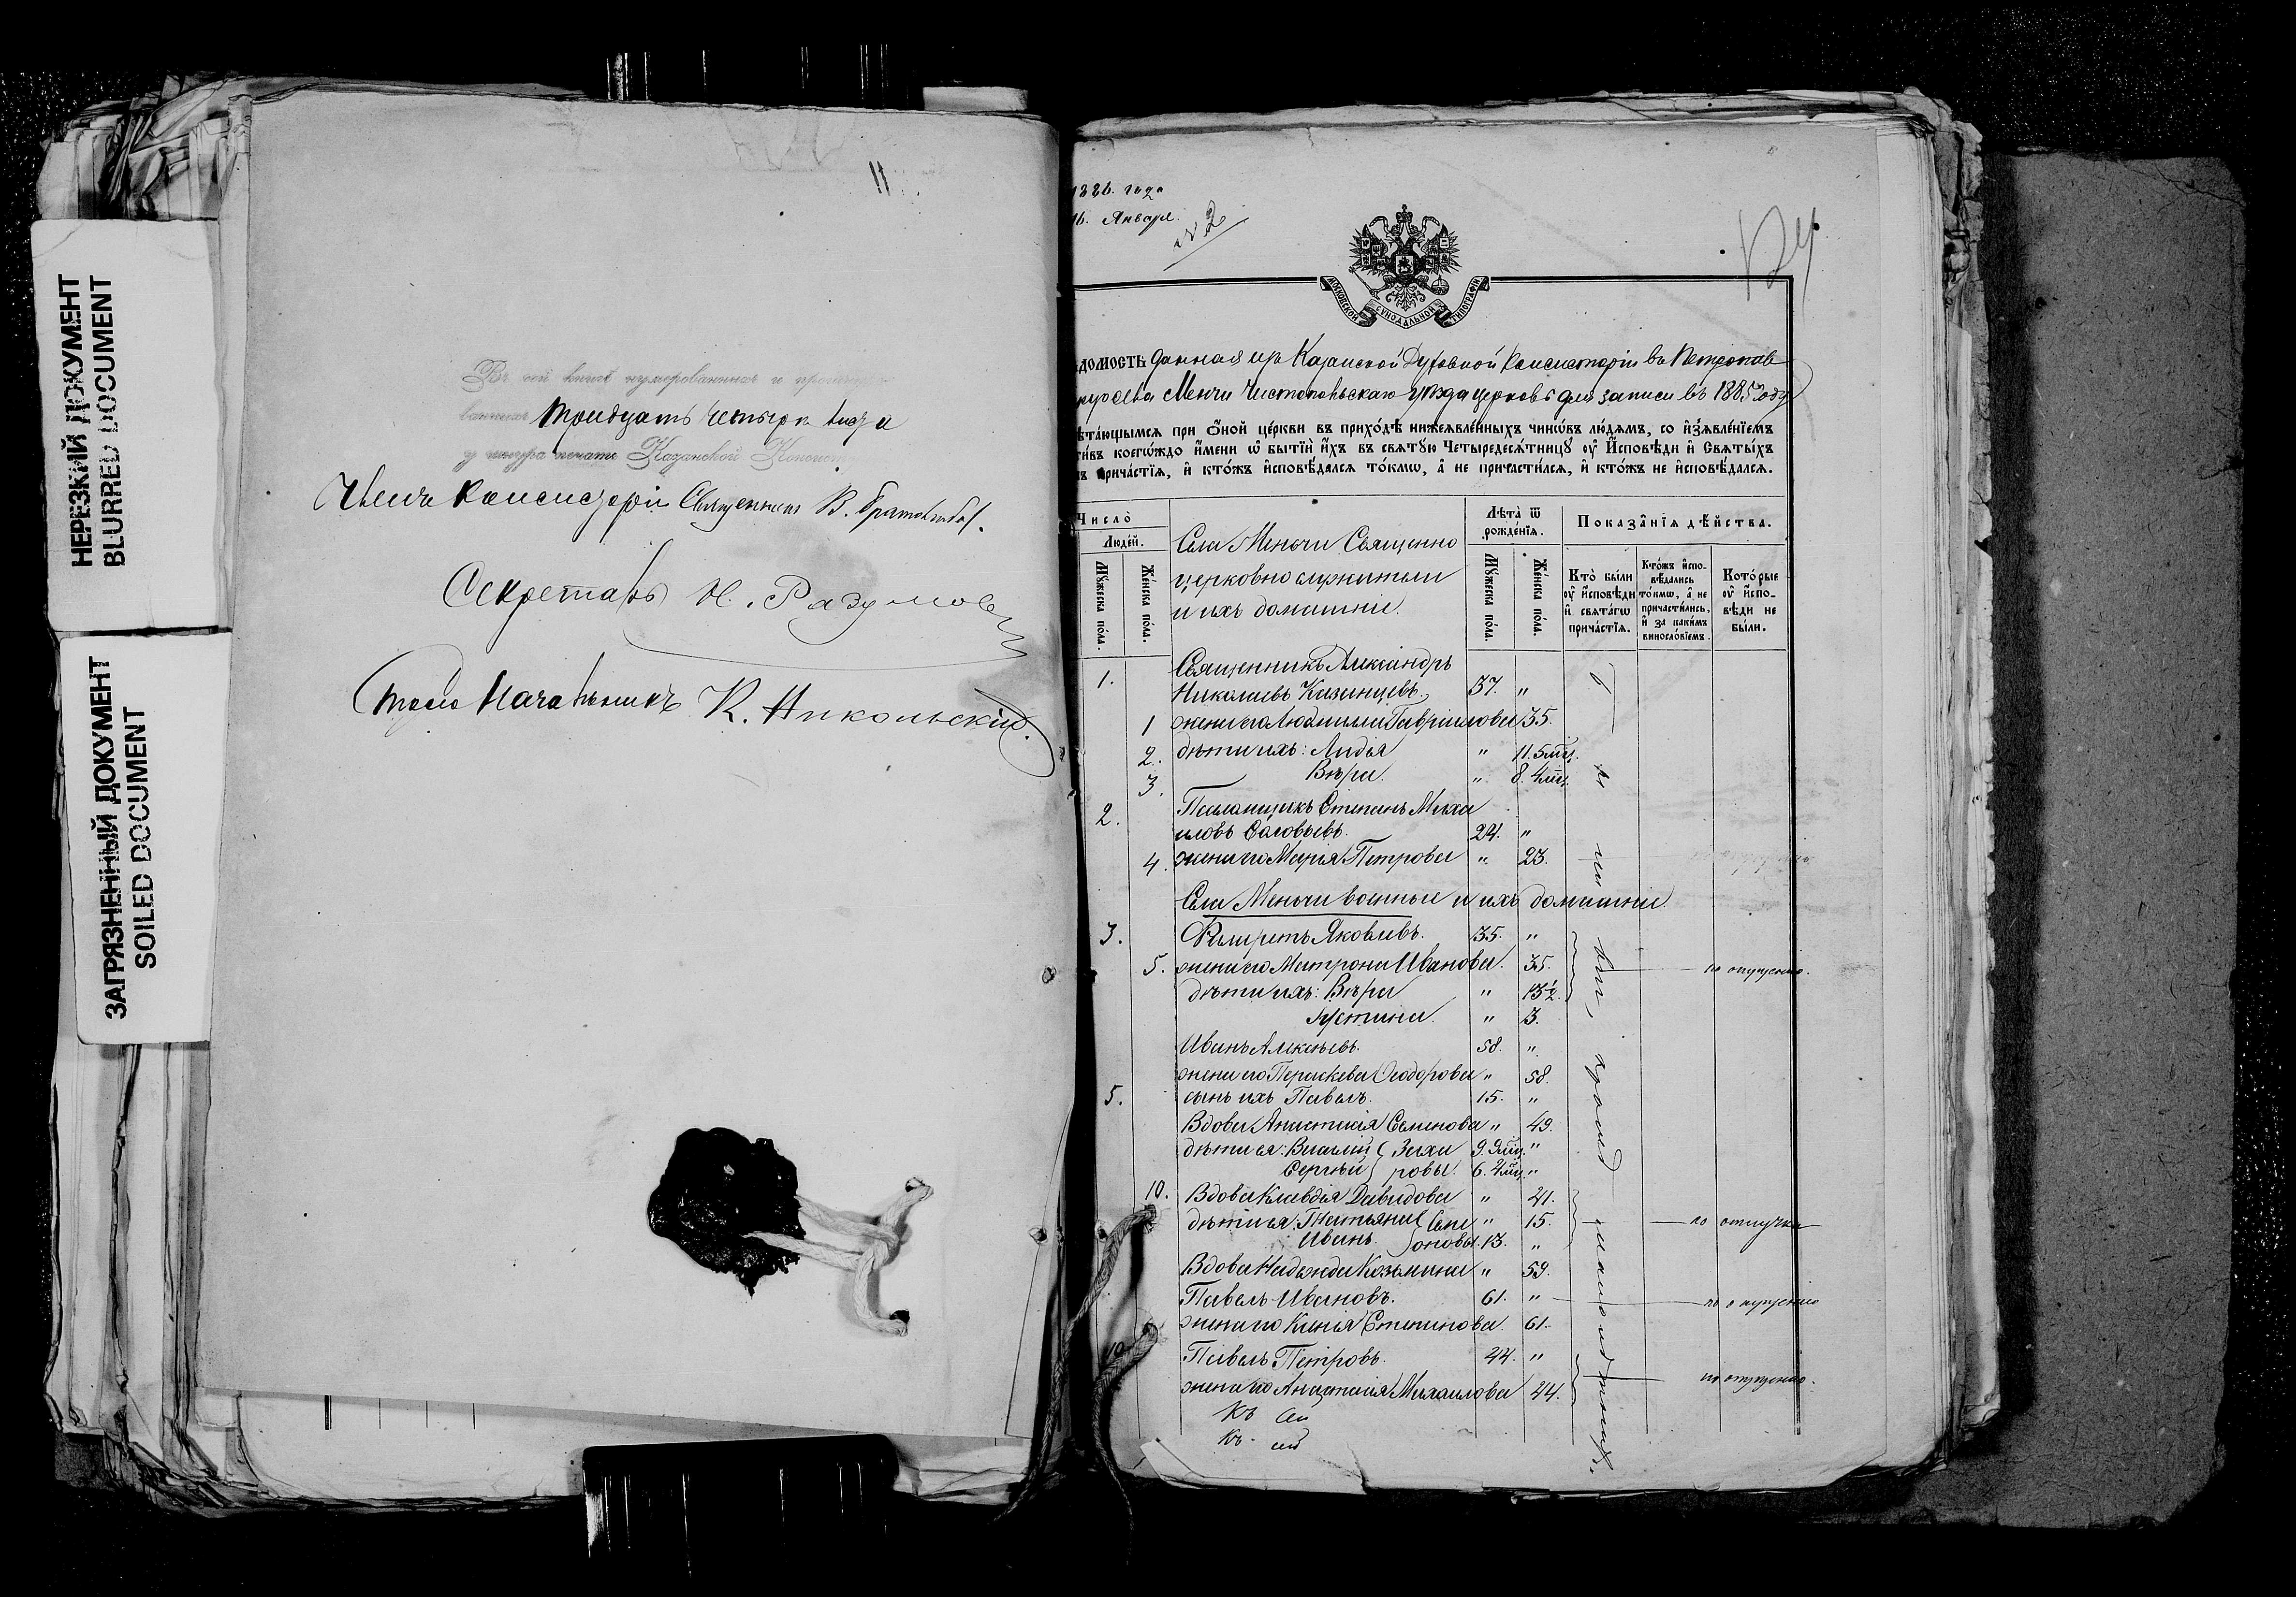 НЕРЕЗКИЙ ДОКУМЕНТ
BLURRED DOCUMENT
ЗАГРЯЗНЕННЫЙ ДОКУМЕНТ
SOILED DOCUMENT
11
Въ сей книгѣ нумерованныхъ и
тридцать четыре листа
у шнура печать Казанской
Членъ Консисторіи Священникъ В.
Секретарь Н. Разумов
Столоначальникъ К. Никольскій.
1886. года
16. Января.
№ 2
МОСКОВСКОЙ СУНОДАЛЬНОЙ ТИПОГРАФІИ
ДОМОСТЬ данная изъ Казанской Духовной Консисторіи въ Петропав
села Менчи Чистопольскаго уѣзда церковь для записи въ 1885 году
ѣтающымсѧ при ѻ҆ной церкви въ приходѣ нижеѧвленныхъ чинѡвъ людѧмъ, со и҆зъѧвленіемъ
ивъ коегѡждо и҆мени ѿ бытіи и҆хъ въ свѧтую Четыредесѧтницу ѹ҆ И҆сповѣди и҆ Свѧтыхъ
ъ причастіѧ, и҆ ктожъ и҆сповѣдалсѧ токмѡ, а҆ не причастилсѧ, и҆ ктожъ не и҆сповѣдалсѧ.
Число
Людей.
Мужеска пола.
Женска пола.
Села Меньчи Священно
церковнослужители
и ихъ домашніе.
Лѣта ѿ рожденіѧ.
Мужеска пола.
Женска пола.
Показаніѧ дѣйства.
Кто были ѹ҆ и҆сповѣди и҆ свѧтагѡ причастіѧ.
Ктожъ и҆сповѣдались токмѡ, а҆ не причастились, и҆ за какимъ винословіемъ.
Которые ѹ҆ и҆сповѣди не были.
1. Священникъ Александръ
Николаевъ Казанцевъ. 37. "
1 жена его Людмила Гавріилова 35.
2. дѣти ихъ: Лидія " 11. 5 мѣс.
3. Вѣра. " 8. 4 мѣс.
2. Псаломщикъ Степанъ Миха
иловъ Соловьевъ. 24. "
4. жена его Марія Петрова " 23.
Села Меньчи военные и ихъ домашніе.
3. Филаретъ Яковлевъ. 35. "
5. жена его Матрона Иванова. 35. по опущенію.
дѣти ихъ: Вѣра " 13½.
Устина. " 3.
Иванъ Алексѣевъ. 58. "
жена его Параскева Ѳеодорова " 58.
5. сынъ ихъ Павелъ. 15. "
Вдова Анастасія Семенова " 49.
дѣти ея: Василій } Заха 9. 9 мѣс. "
Сергѣй } ровы. 6. 4 мѣс. "
10. Вдова Клавдія Давидова " 41.
дѣти ея: Татьяна { Сим " 15. по отлучкѣ
Иванъ. } оновы. 13. "
Вдова Надежда Козьмина " 59.
Павелъ Ивановъ. 61. " по опущенію
жена его Ксенія Степанова. 61.
10. Павелъ Петровъ. 44. "
жена его Анастасія Михаилова 44. по опущенію.